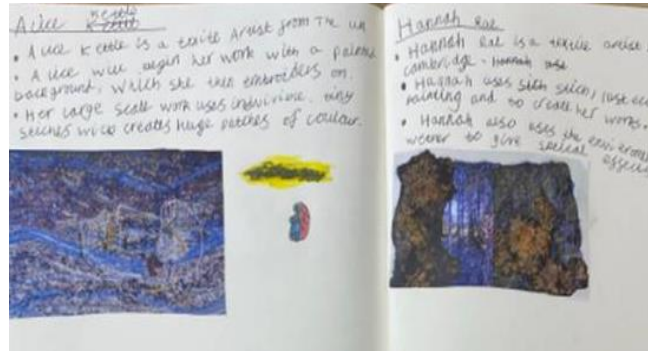 Alice Kettle
• Alice Kettle is a textile Artist from The UK
• Alice will begin her work with a painted
background, which she then embroiders on.
• Her large scale work uses indiviriue, tiny
stiches wich creates huge patches of coulour.
Hannah Rae
• Hannah Rae is a textile artist
cambridge.
• Hannah uses silk stich,
painting and to create her works.
• Hannah also uses the
to give special effects